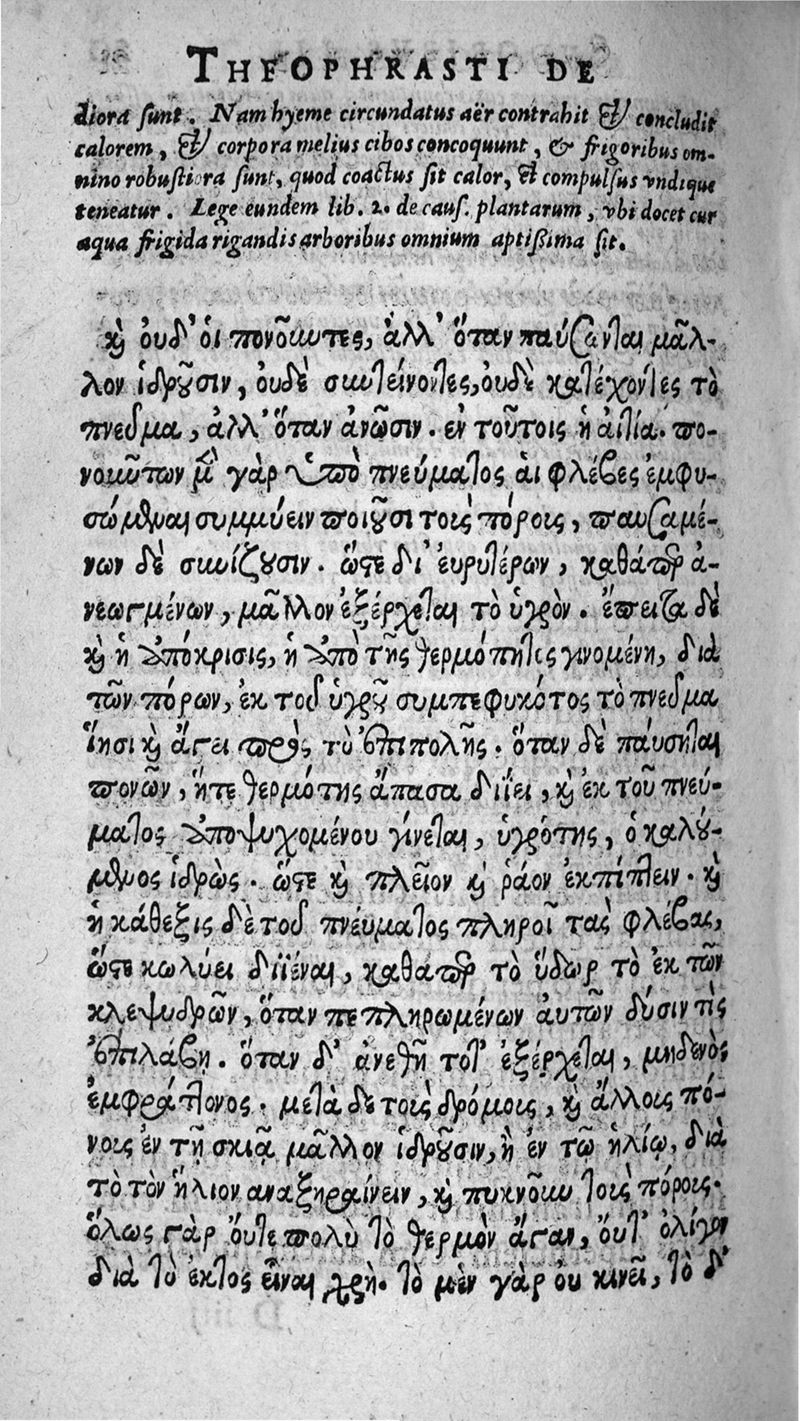 THEOPHRASTI DE
diora sunt. Nam hyeme circundatus aër contrahit & concludit
calorem, & corpora melius cibos concoquunt, & frigoribus om-
nino robustiora sunt, quod coactus sit calor, & compulsus vndique
teneatur. Lege eundem lib. 2. de caus. plantarum, vbi docet cur
aqua frigida rigandis arboribus omnium aptissima sit.
καὶ ουδ' ὁι πονοῦντες, ἀλλ' ὅταν παύσωνται μᾶλ-
λον ἱδροῦσιν, ουδὲ συντείνοντες, ουδὲ κατέχοντες τὸ
πνεῦμα, ἀλλ' ὅταν ἀνῶσιν. εν τοῦτοις ἡ ἀιτία. πο-
νούντων μὲν γὰρ ὑπὸ πνεύματος ἁι φλέβες ἐμφυ-
σώμεναι συμμύειν ποιοῦσι τοις πόροις, παυσαμέ-
νων δὲ συνίζουσιν. ὥστε δι' ἐυρυτέρων, καθάπερ ἀ-
νεωγμένων, μᾶλλον ἐξέρχεται τὸ ὑγρὸν. ἔπειτα δὲ
καὶ ἡ ἀπόκρισις, ἡ ἀπὸ τῆς θερμότητος γινομένη, διὰ
τῶν πόρων, ἐκ τοῦ ὑγροῦ συμπεφυκότος τὸ πνεῦμα
ἵησι καὶ ἄγει πρὸς τὸ ἐπιπολῆς. ὅταν δὲ παύσηται
πονῶν, ἥτε θερμότης ἅπασα διίει, καὶ ἐκ τοῦ πνεύ-
ματος ἀποψυχομένου γίνεται, ὑγρότης, ὁ καλού-
μενος ἱδρὼς. ὥστε καὶ πλεῖον καὶ ῥάον ἐκπίπτειν. καὶ
ἡ κάθεξις δὲ τοῦ πνέυματος πληροῖ τας φλέβας,
ὥστε κωλύει διϊέναι, καθάπερ τὸ ὕδωρ τὸ ἐκ τῶν
κλεψυδρῶν, ὅταν πεπληρωμένων ἀυτῶν δύσιν τὶς
ἐπιλάβῃ. ὅταν δ' ἀνεθῆ τοτ' ἐξέρχεται, μηδενὸς
ἐμφράττονος. μετὰ δὲ τοις δρόμοις, καὶ ἄλλοις πό-
νοις ἐν τῇ σκιᾷ μᾶλλον ἱδροῦσιν, ἢ ἐν τῶ ἡλίῳ, διὰ
τὸ τὸν ἥλιον αναξηραίνειν, καὶ πυκνοῦν τοις πόροις.
ὅλως γὰρ ὄυτε πολὺ τὸ θερμὸν ἄγαν, ὄυτ' ὀλίγον
διὰ τὸ ἐκτος εἶναι χρὴ. τὸ μὲν γὰρ ου κινεῖ, τὸ δ'